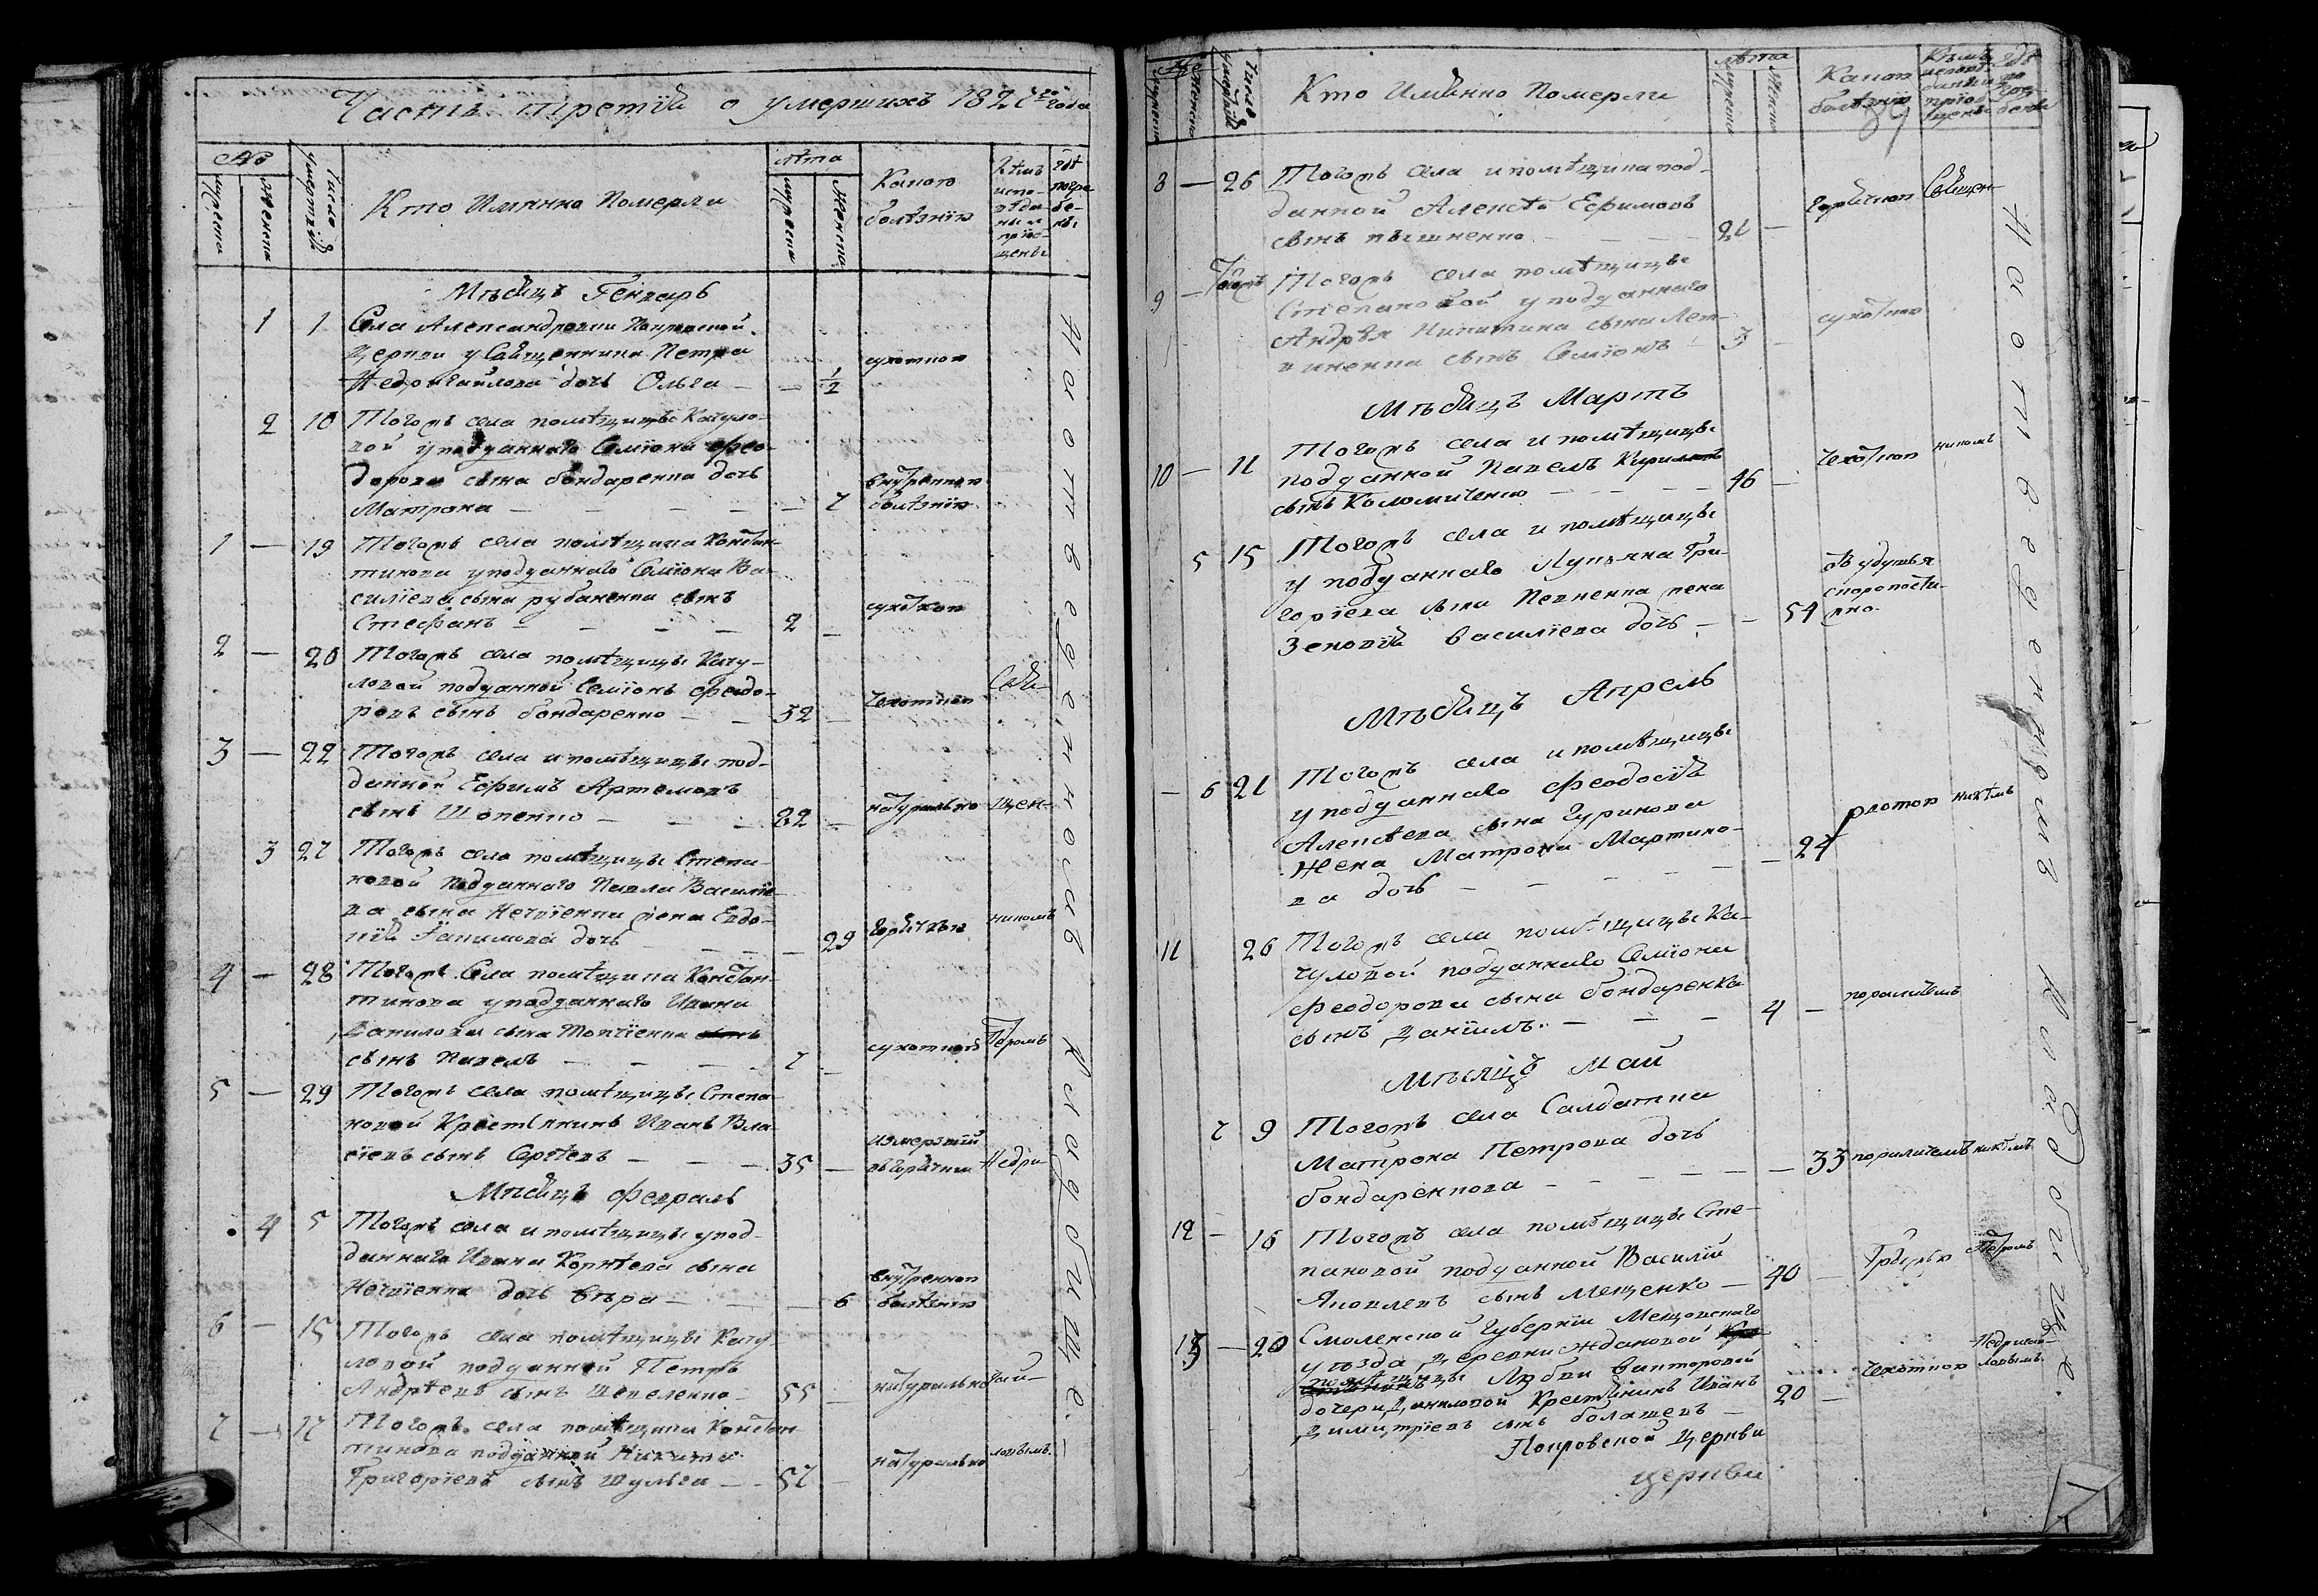 Часть третїя о умершихъ 1827го года
№
мужеска
женска
Число умертвїя
Кто Имянно Померли
лѣта
мужеска
женска
Какою болѣзнїю
Кѣмъ испо-
вѣда-
ны и
прїоб-
щены
Гдѣ
погре
бе-
ны
Мѣсяцъ Генварь
1 1 Села Александровки Покровской
церкви у Священника Петра
Недригайлова дочь Ольга — — 1/2 сухоткою
2 10 Тогожъ села помѣщицы Качуло-
вой у подданнаго Семїона Фео-
дорова сына бондаренка дочь
Матрона — — — — 7 внутреннею болѣзнїю
1 — 19 Тогожъ села помѣщика Констан-
тинова у подданнаго Семїона Ва-
силїева сына рубаненка сынъ
Стефанъ — — — 2 — сухоткою
2 — 20 Тогожъ села помѣщицы Качу-
ловой подданной Семїонъ Феодо-
ровъ сынъ бондаренко — — 32 — чехоткою Свя-
3 — 22 Тогожъ села и помѣщицы под-
данной Ефимъ Артемовъ
сынъ Шопенко — — — 82 — натурально щен-
3 27 Тогожъ села помѣщицы Степа-
новой подданнаго Павла Василїе-
ва сына Нечвїенка жена Евдо-
кїя Їакимова дочь — — — 29 горячкою никомъ
4 — 28 Тогожъ Села помѣщика Констан-
тинова у подданнаго Ивана
Данилова сына Топчїенка
сынъ Павелъ — — — 7 — сухоткою Петромъ
5 — 29 Тогожъ села помѣщицы Степа-
новой Крестянинъ Иванъ Вла-
сїевъ сынъ Сергѣевъ — — — 35 — измерзтїй въ горячки Недри-
Мѣсяцъ Февраль
4 5 Тогожъ села и помѣщицы у под-
даннаго Ивана Корнѣева сына
Нечвїенка дочь Вѣра — — — 6 внутреннею болѣзнїю
6 — 15 Тогожъ села помѣщицы Качу-
ловой подданной Петръ
Андрѣевъ сынъ Шепеленко — 55 — натурально гай-
7 — 17 Тогожъ села помѣщика Констан-
тинова подданной Никита
Григорїевъ сынъ Шульга — 57 — натурально ловымъ
На отведенномъ кладбище.
№
мужеска
женска
Число умертвїя
Кто Имянно Померли
лѣта
мужеска
женска
Какою болѣзнїю
Кѣмъ
исповѣ-
даны и
прїоб
щены
гдѣ
по
гре
бены
8 — 26 Тогожъ села и помѣщика под-
данной Алексѣй Ефимовъ
сынъ пышненко — — — 21 — горячкою Священ-
9 — Тогожъ Тогожъ села помѣщицы
Степановой у подданнаго
Андрѣя Никитина сына
сынъ Семїонъ — 3 — сухоткою
Мѣсяцъ Мартъ
10 — 11 Тогожъ села и помѣщицы
подданной Павелъ Кириловъ
сынъ Коломиченко — — — 46 — чехоткою никомъ
5 15 Тогожъ села и помѣщицы
у подданнаго Лукьяна Гри-
горїева сына Певненка жена
Зеновїя Василїева дочь — — 54 отъ удушья скоропости-
жно
Мѣсяцъ Апрель
— 6 21 Тогожъ села и помѣщицы
у подданнаго Феодосїя
Алексѣева сына Гуринова
жена Матрона Мартино-
ва дочь — — — — — 24 рвотою никѣмъ
11 26 Тогожъ села помѣщицы Ка-
чуловой подданнаго Семїона
Феодорова сына бондаренка
сынъ Данїилъ. — — — 4 — поралічемъ
Мѣсяцъ Май
7 9 Тогожъ села Салдатка
Матрона Петрова дочь
бондаренкова — — — — — 33 параличемъ никѣмъ
12 — 16 Тогожъ села помѣщицы Сте-
пановой подданной Василїй
Яковлевъ сынъ Мещенко — 40 — Петромъ
13 — 20 Смоленской Губернїи Мещовскаго
уѣзда деревни Ждановой
помѣщицы Любви Викторовой
дочери Даниловой Крестянинъ Иванъ
Димитрїевъ сынъ болашевъ — 20 — чехоткою Недригай-
ловымъ.
Покровской Церкви
церкви
На отведенномъ кладбище.